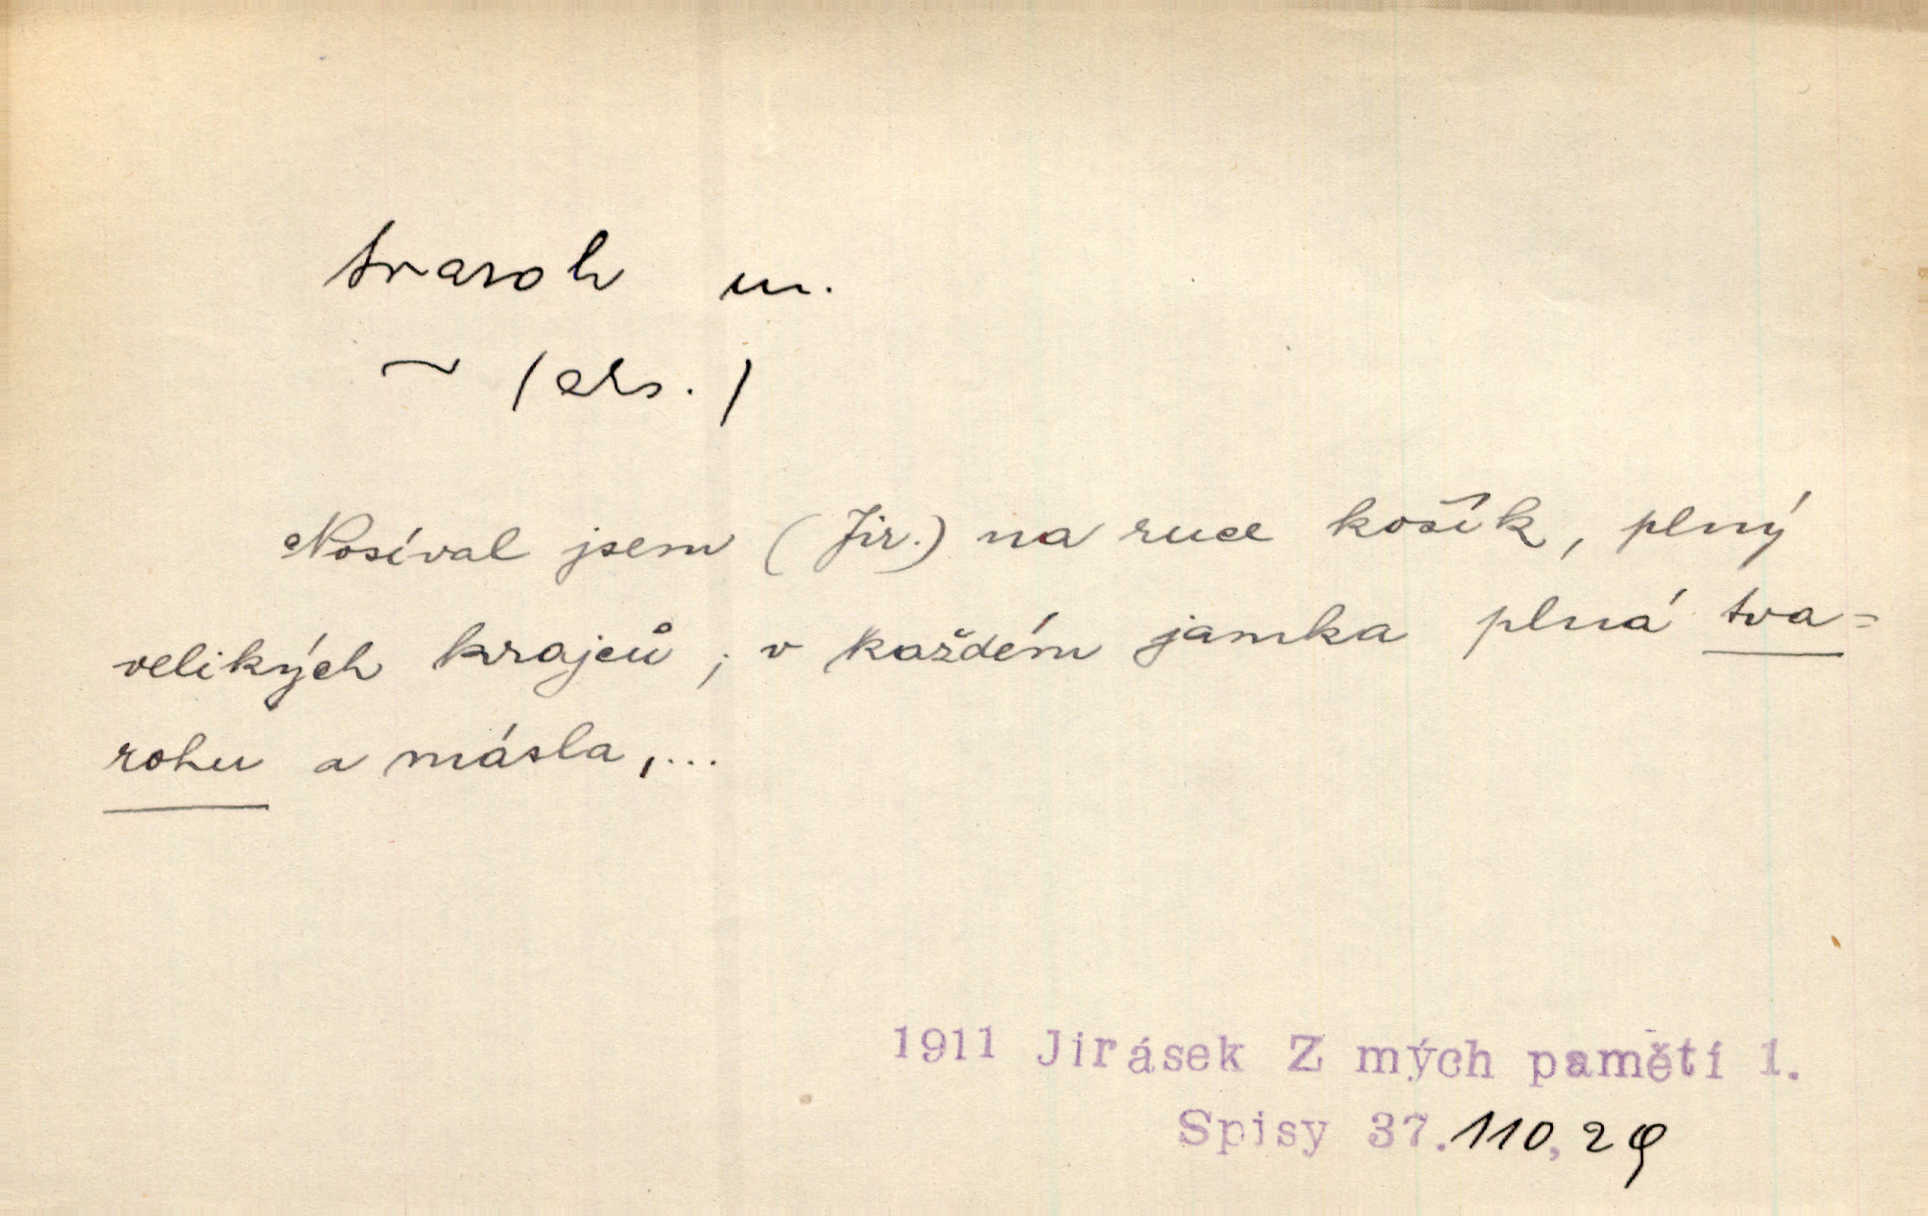 tvaroh m.
~ (ers.)
Nosíval jsem (Jir.) na ruce košík, plný
velikých krajců; v každém jamka plná tva=
rohu a másla,...
1911 Jirásek Z mých pamětí 1.
Spisy 37.110,29